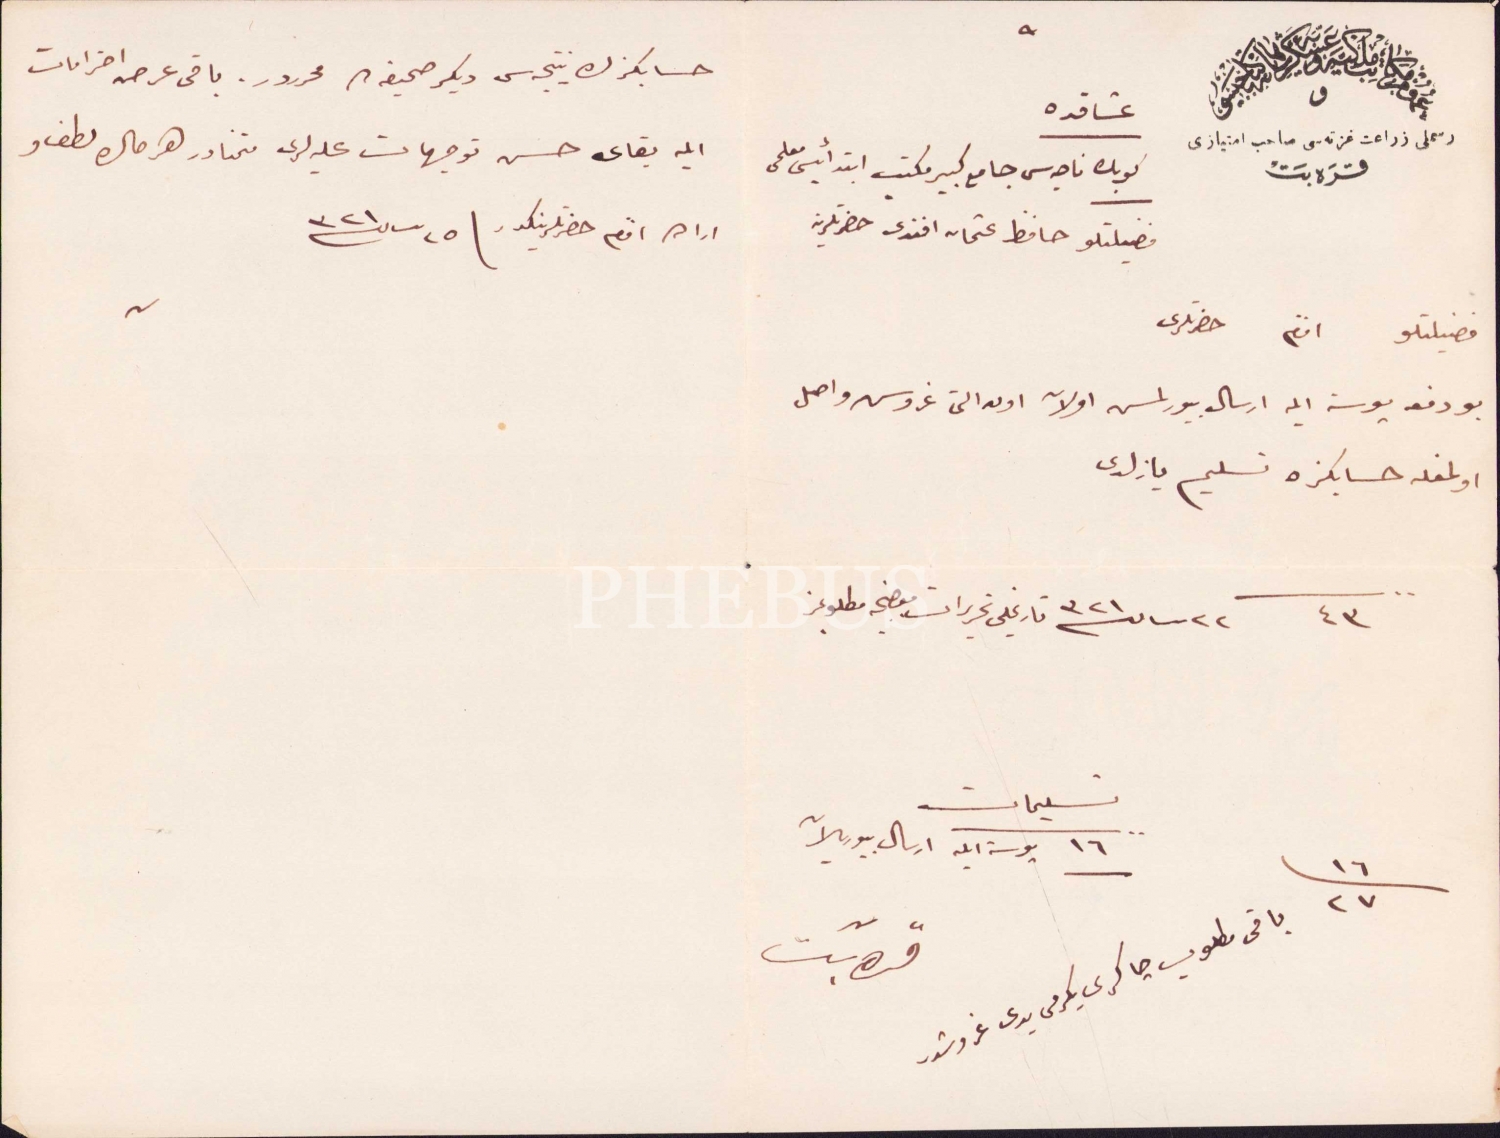 و
رسملی زراعت غزته سی صاحب امتیازی
قره بت
عشاقده
كوبك ناحیه سی جامع كبیر مكتب ابتدائیسی معلمی
فضیلتلو حافظ عثمان افندی حضرتلرینه
فضیلتلو افندم حضرتلری
بو دفعه پوسته ایله ارسال بیورلمش اولان اون التی غروش واصل
اولمغله حسابكزه تسلیم یازلدی
٤٣ ٢٢ ٣٢١ تاریخلی تحریرات موضحه مطلوبمز
تسلیمات
١٦ پوسته ایله ارسال بیوریلان
١٦
٢٧ باقی مطلوب چاكری یكرمی یدی غروشدر
قره بت
حسابكزك نتیجه سی دیكر صحیفه ده محرردر. باقی عرض احترامات
ایله بقای حسن توجهات علیه لری متمنادر هر حالده لطف و
اراده افندم حضرتلرینكدر ٢٥ ٣٢١
PHEBUS